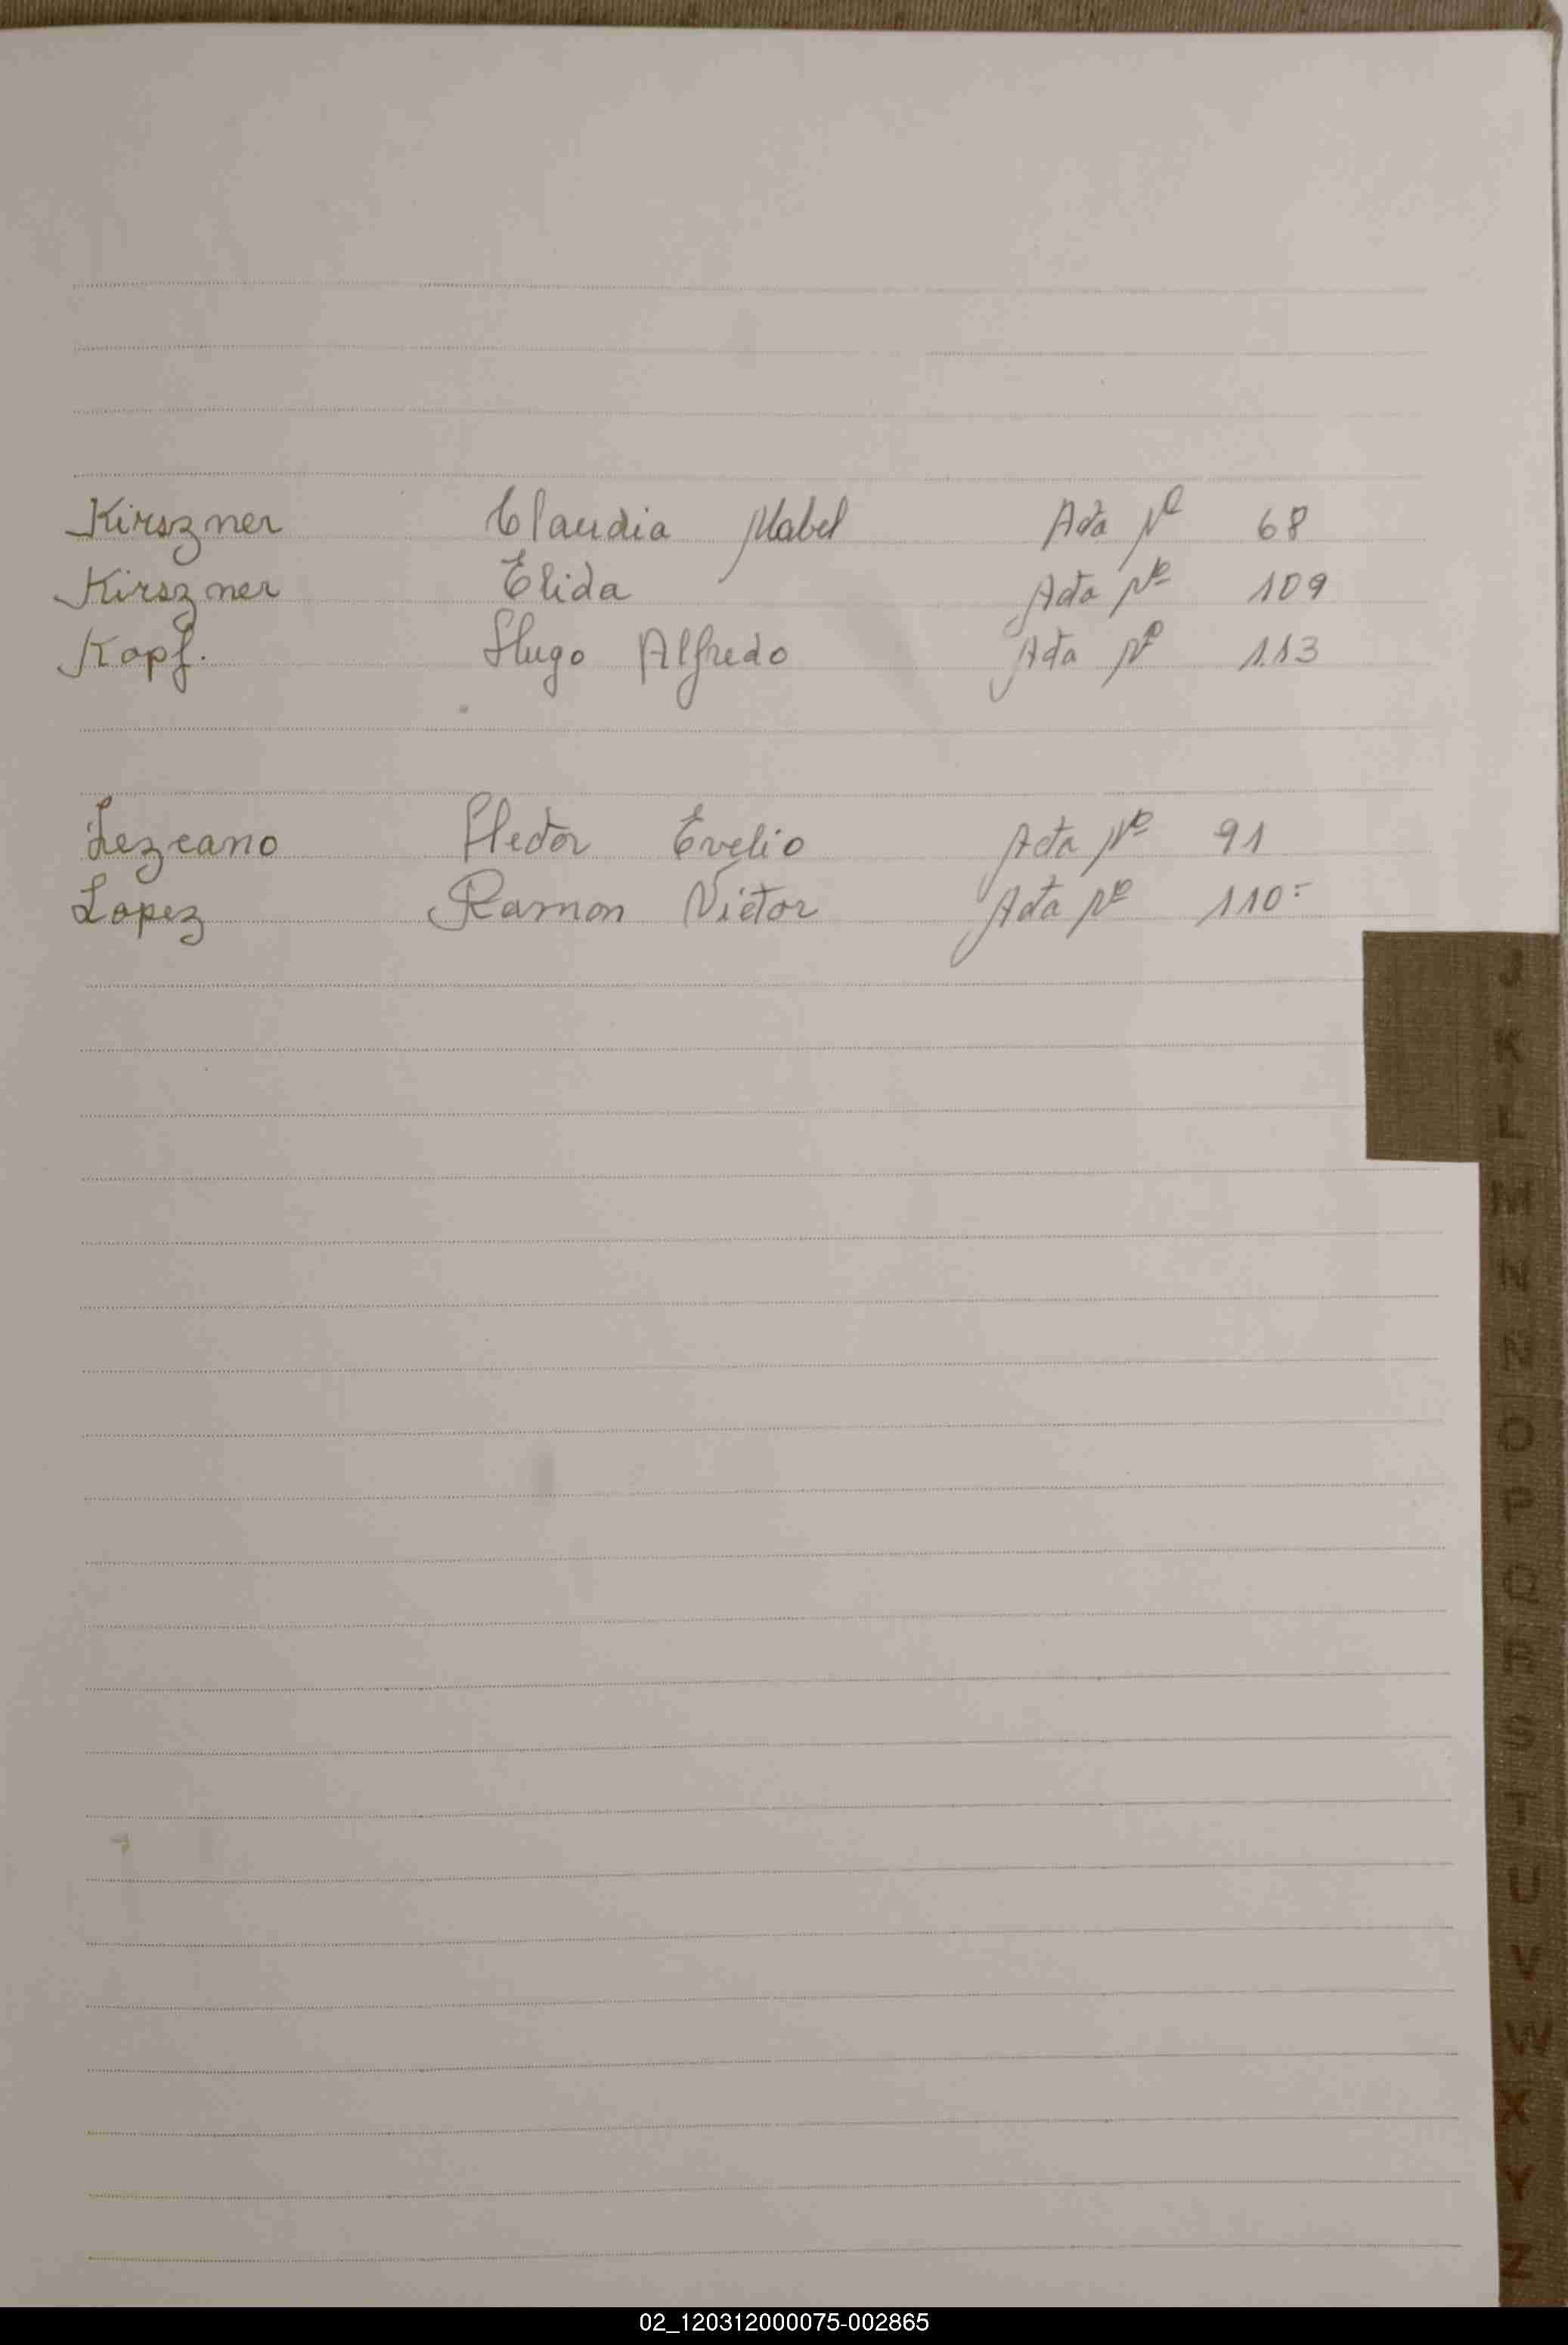 Kirszner Claudia Mabel Acta Nº 68
Kirszner Elida Acta Nº 109
Kopf. Hugo Alfredo Acta Nº 113
Lezcano Hector Evelio Acta Nº 91
Lopez Ramon Victor Acta Nº 110=
J
K
L
M
N
Ñ
O
P
Q
R
S
T
U
V
W
X
Y
Z
02_120312000075-002865